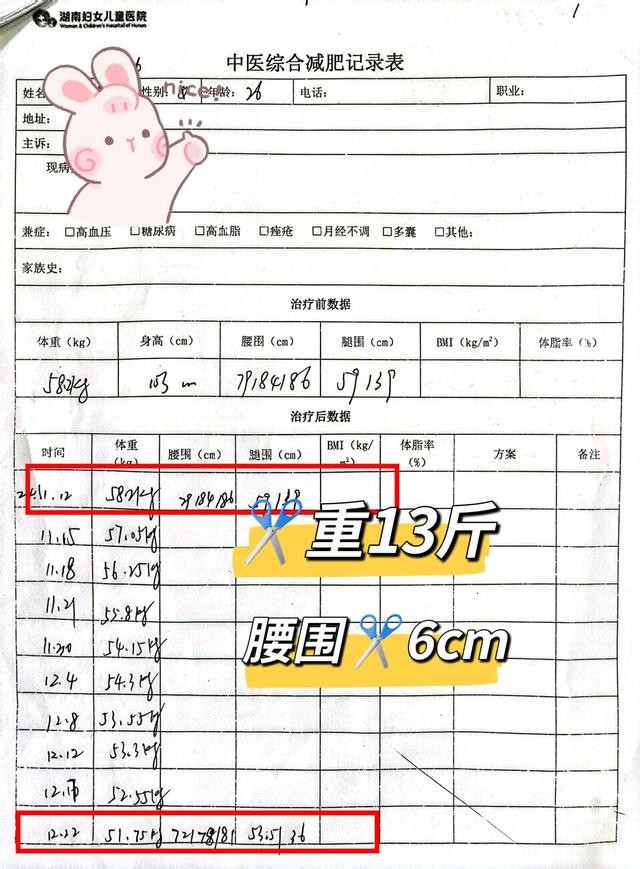 湖南妇女儿童医院
Women & Children's Hospital of Hunan
1
中医综合减肥记录表
nice!
姓名 性别: 年龄: 26 电话: 职业:
地址:
主诉:
现病
兼症: □高血压 □糖尿病 □高血脂 □痤疮 □月经不调 □多囊 □其他:
家族史:
治疗前数据
体重(kg) 身高(cm) 腰围(cm) 腿围(cm) BMI(kg/m²) 体脂率(%)
58.2kg 79184186 59139
治疗后数据
时间 体重(kg) 腰围(cm) 腿围(cm) BMI(kg/m²) 体脂率(%) 方案 备注
24.11.12 58.2kg 79184186 59139
11.15 57.05kg
重13斤
11.18 56.25kg
11.21 55.8kg
11.30 54.15kg
腰围 6cm
12.4 54.3kg
12.8 53.55kg
12.12 53.3kg
52.55kg
12.22 51.75kg 72178181 53.5136